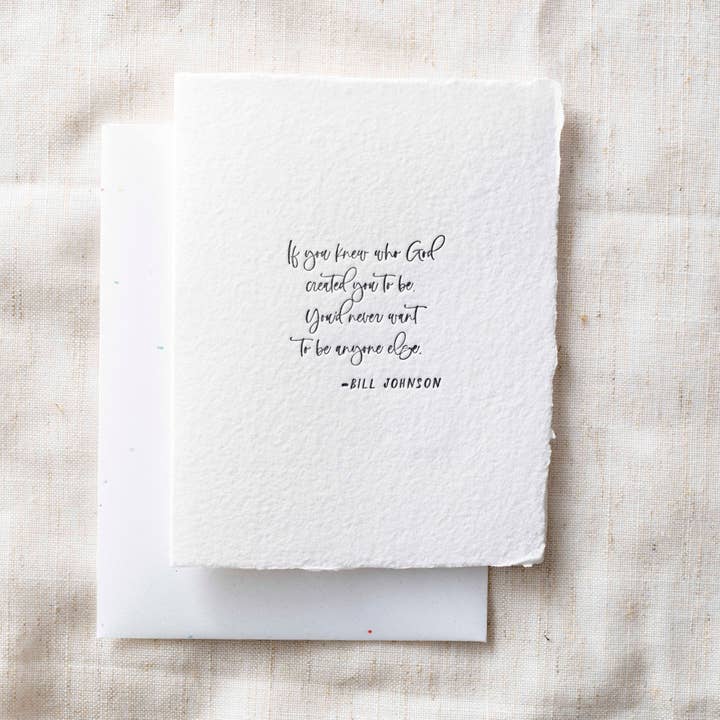 If you knew who God
created you to be.
You'd never want
To be anyone else.
-BILL JOHNSON